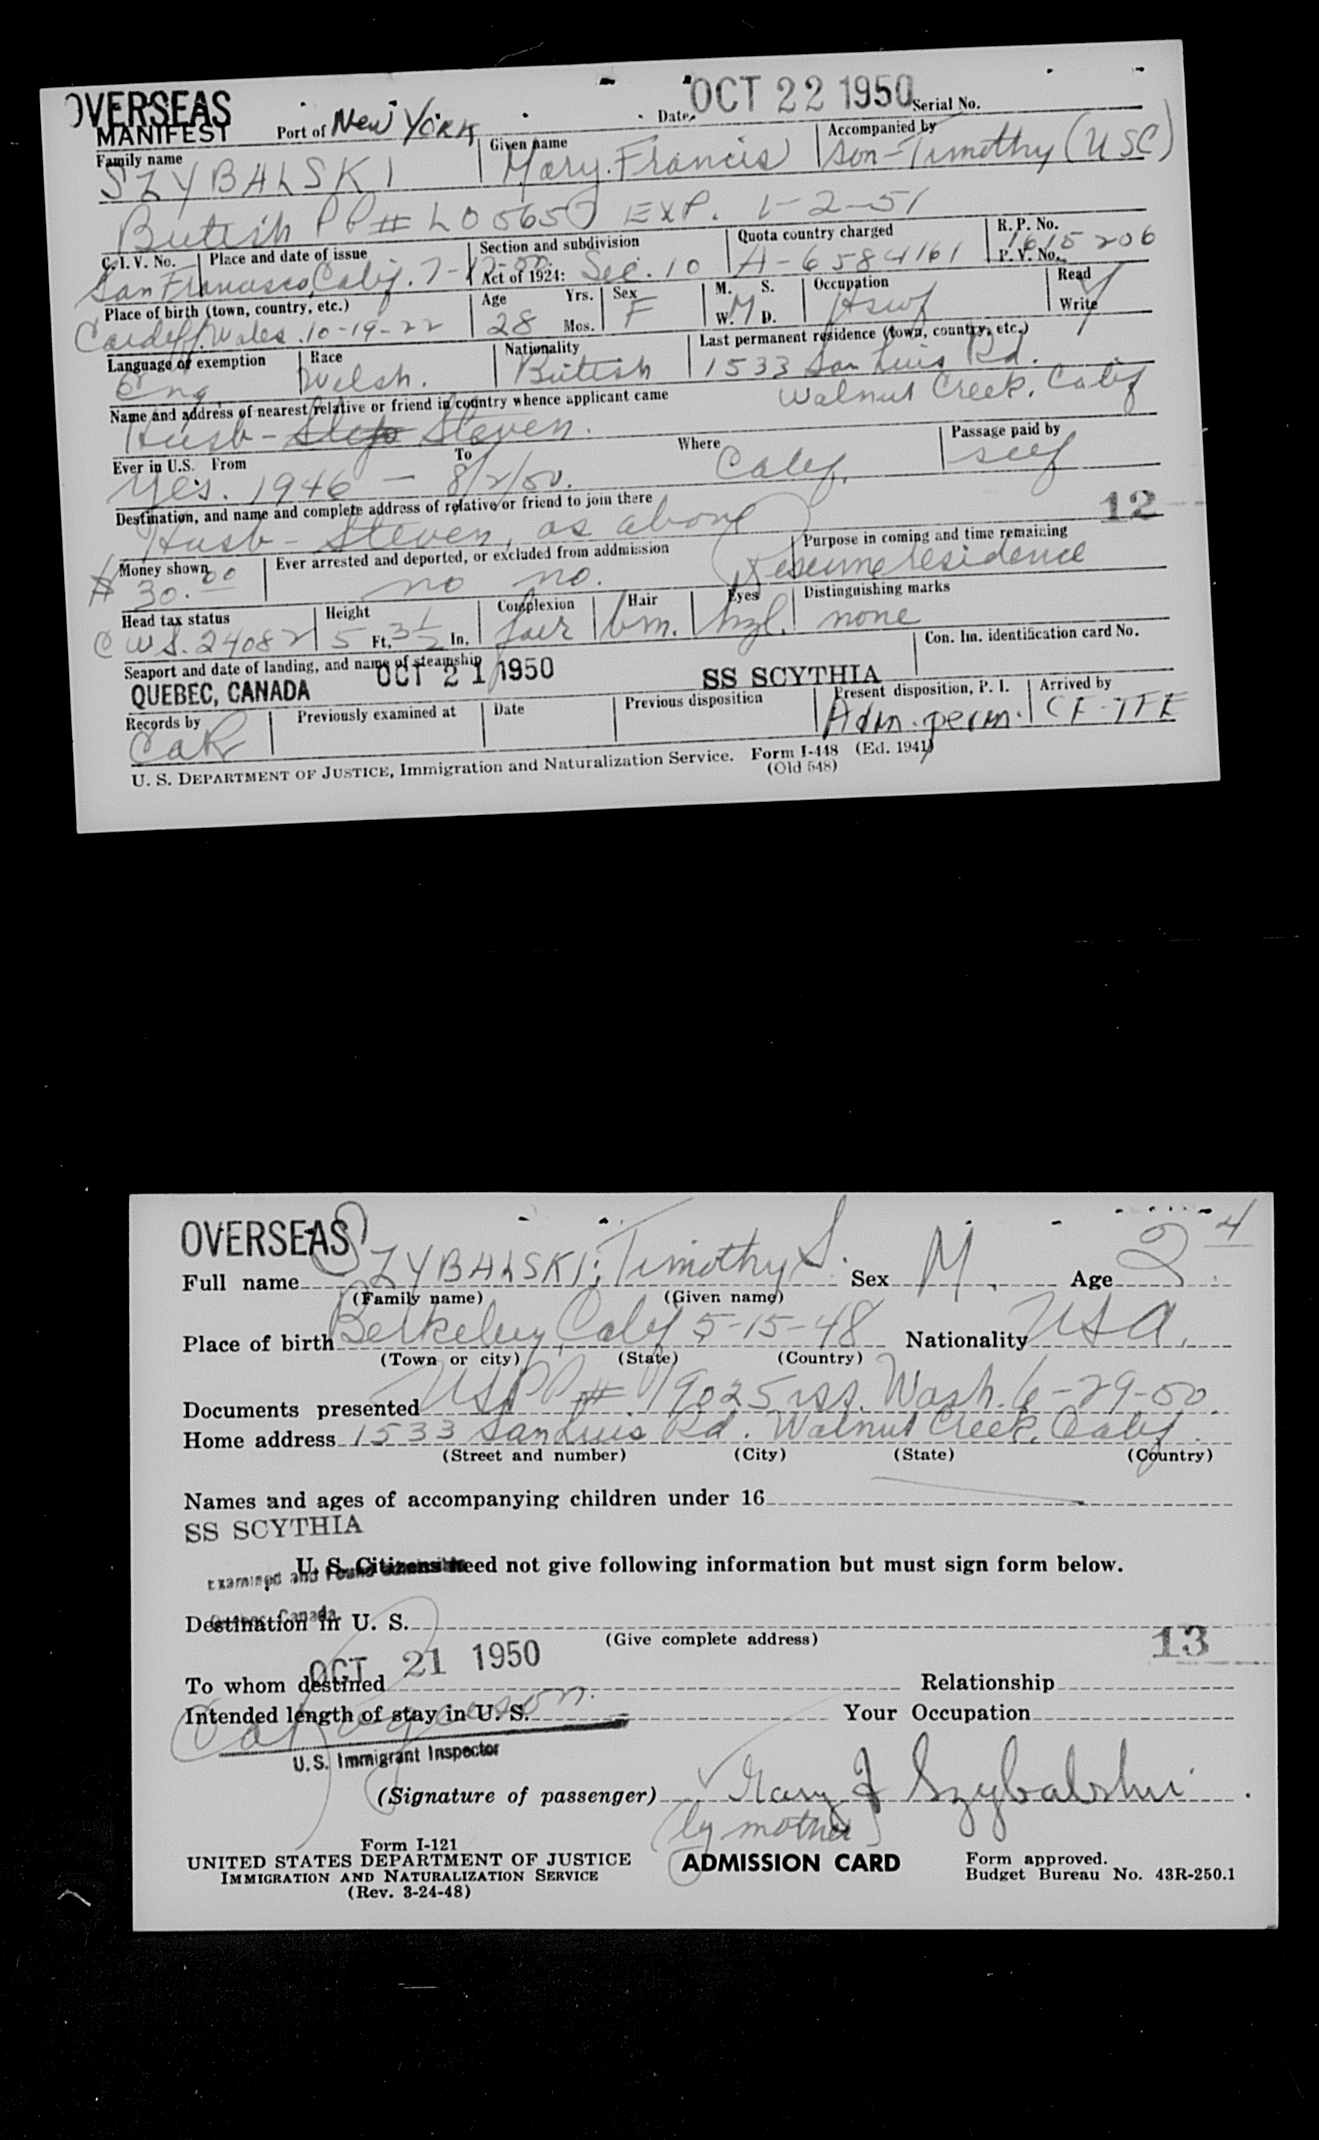 OVERSEAS
MANIFEST Port of New YORK Date OCT 22 1950 Serial No.
Family name Given name Accompanied by
SZYBALSKI Mary Francis son-Timothy (USC)
British PP# L05650 EXP. 1-2-51
C.I.V. No. Place and date of issue Section and subdivision Quota country charged R.P. No.
San Francisco, Calif. 7- Act of 1924: Sec. 10 A-6584161 1615206 P.V. No.
Place of birth (town, country, etc.) Age Yrs. Sex M. S. Occupation Read
Cardiff, Wales. 10-19-22 28 Mos. F W. M D. Hswf Write
Language or exemption Race Nationality Last permanent residence (town, country, etc.)
Eng. Welsh. British 1533 San Luis Rd.
Name and address of nearest relative or friend in country whence applicant came Walnut Creek, Calif
Husb- Steven.
Ever in U.S. From To Where Passage paid by
Yes. 1946 - 8/2/50. Calif. self
Destination, and name and complete address of relative or friend to join there 12
Husb- Steven, as above
Money shown Ever arrested and deported, or excluded from addmission Purpose in coming and time remaining
$30.00 no no. Resume residence
Head tax status Height Complexion Hair Eyes Distinguishing marks
C W.S. 24082 5 Ft. 3 1/2 In. fair brn. hzl. none
Con. Im. identification card No.
Seaport and date of landing, and name of steamship
QUEBEC, CANADA OCT 21 1950 SS SCYTHIA
Records by Previously examined at Date Previous disposition Present disposition, P. I. Arrived by
CaR Adm. perm.
U. S. DEPARTMENT OF JUSTICE, Immigration and Naturalization Service. Form I-448 (Ed. 1941)
(Old 548)
OVERSEAS
Full name SZYBALSKI; Timothy S. Sex M. Age 2 4
(Family name) (Given name)
Place of birth Berkeley, Calif 5-15-48 Nationality USA.
(Town or city) (State) (Country)
Documents presented USPP # 19025 iss. Wash. 6-29-50.
Home address 1533 San Luis Rd. Walnut Creek, Calif.
(Street and number) (City) (State) (Country)
Names and ages of accompanying children under 16
SS SCYTHIA
U. S. Citizens need not give following information but must sign form below.
Examined and Found
Quebec, Canada
Destination in U. S.
(Give complete address)
13
OCT 21 1950
To whom destined Relationship
Intended length of stay in U. S. Your Occupation
U.S. Immigrant Inspector
(Signature of passenger) Mary F Szybalski
(by mother)
Form I-121
UNITED STATES DEPARTMENT OF JUSTICE ADMISSION CARD Form approved.
IMMIGRATION AND NATURALIZATION SERVICE Budget Bureau No. 43R-250.1
(Rev. 3-24-48)